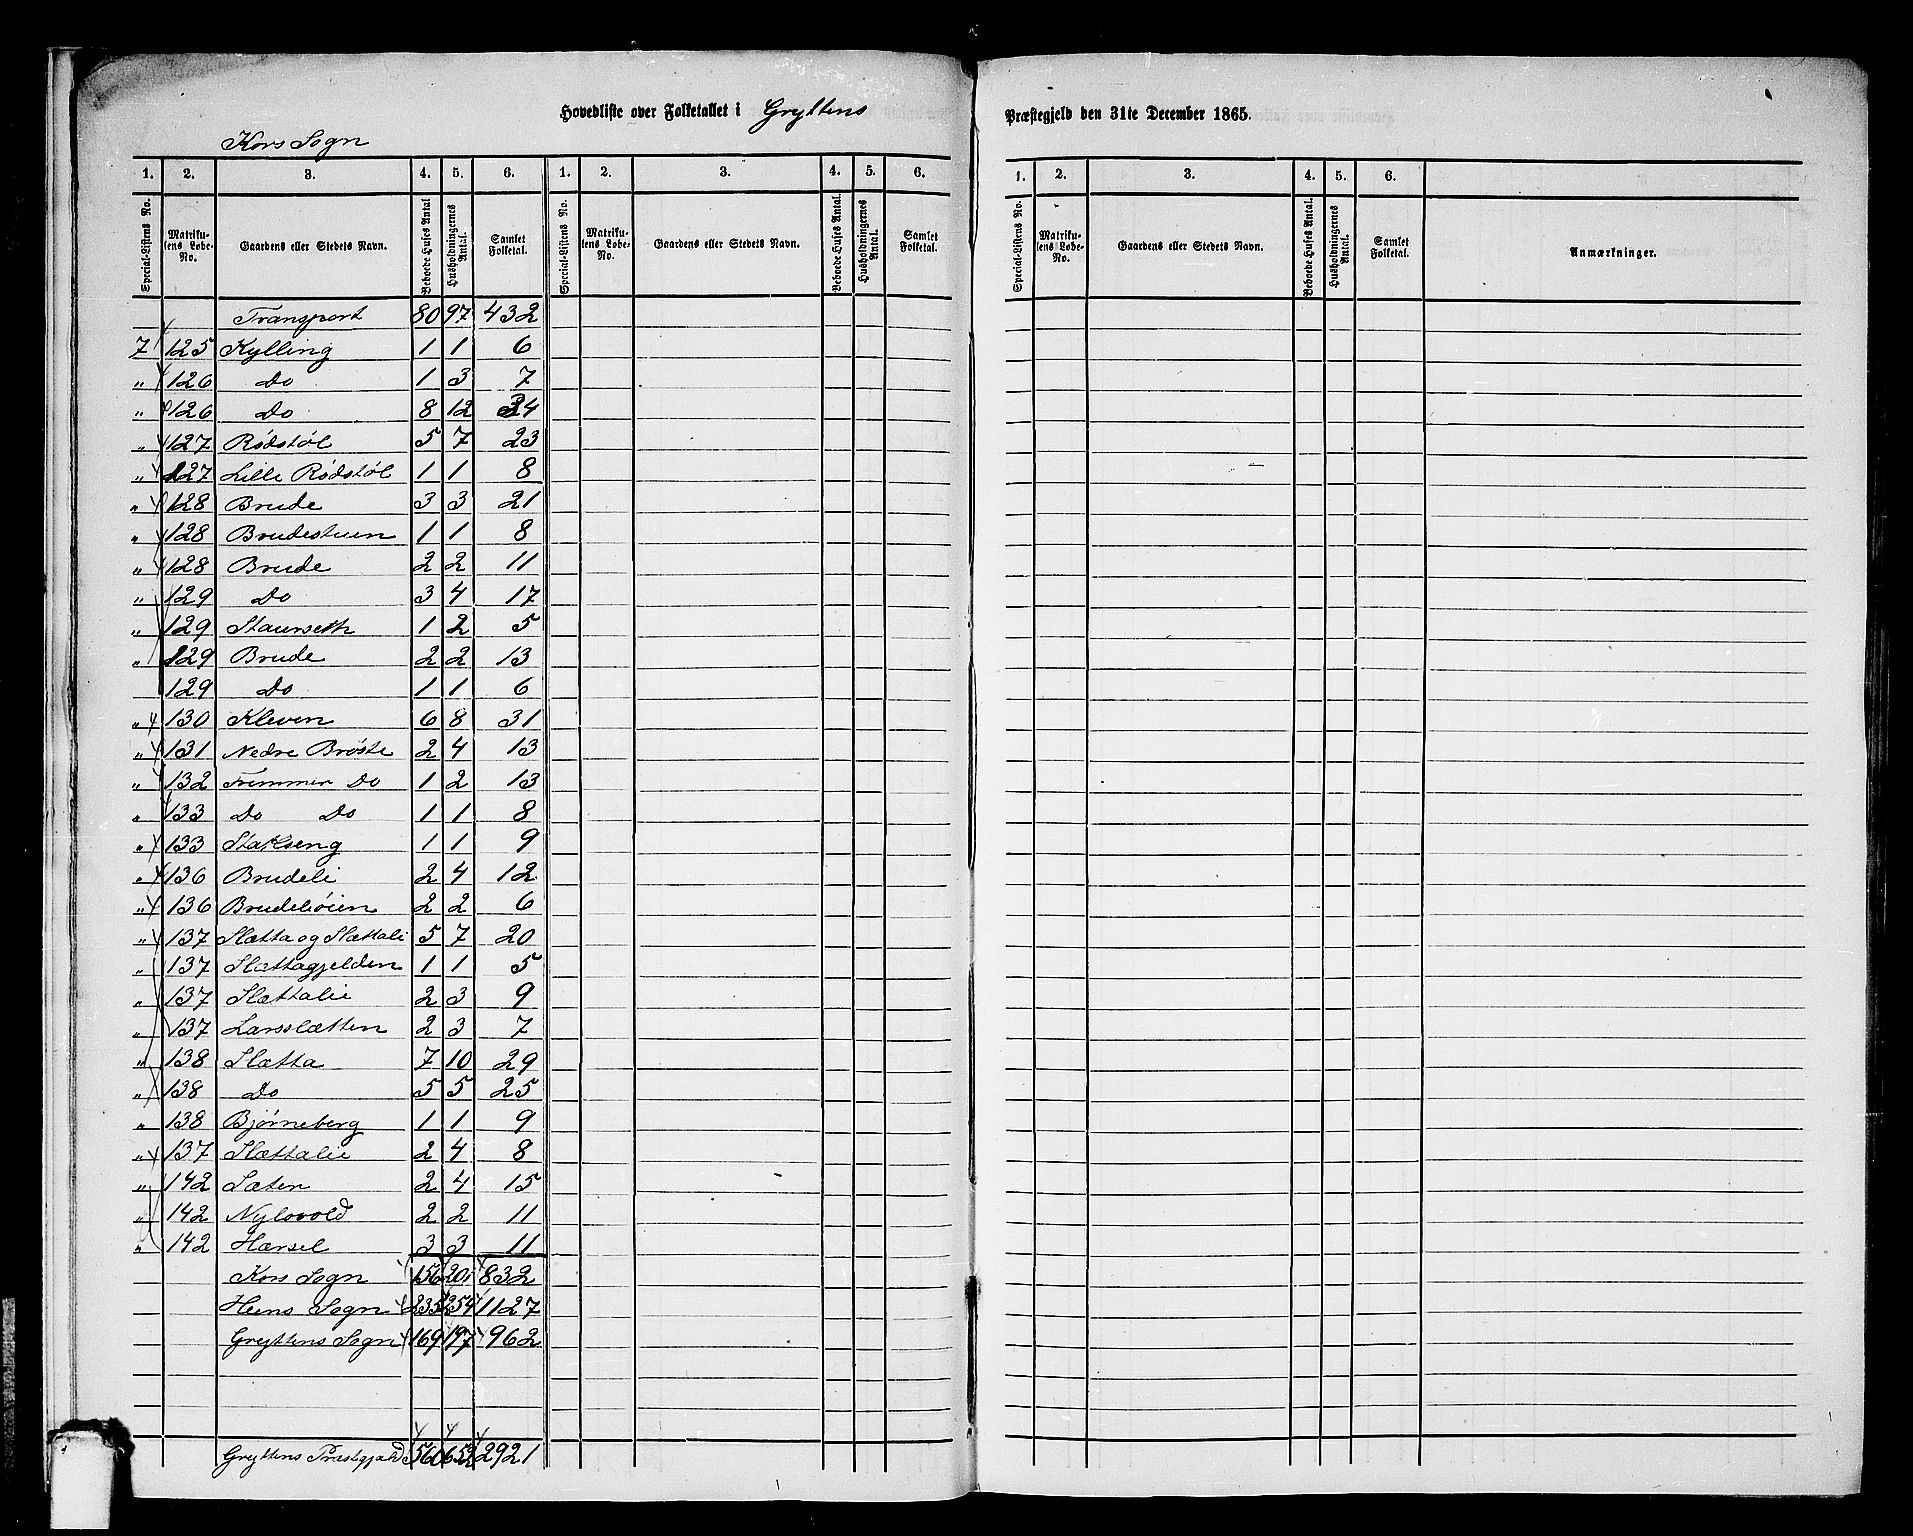 Hovedliste over Folketallet i Gryttens Præstegjeld den 31te December 1865.
Kors Sogn
1. 2. 3. 4. 5. 6. 1. 2. 3. 4. 5. 6. 1. 2. 3. 4. 5. 6.
Special-Listens No. Matrikulens Løbe-No. Gaardens eller Stedets Navn. Beboede Huses Antal Husholdningernes Antal. Samlet Folketal. Special-Listens No. Matrikulens Løbe-No. Gaardens eller Stedets Navn. Beboede Huses Antal. Husholdningernes Antal. Samlet Folketal. Special-Listens No. Matrikulens Løbe-No. Gaardens eller Stedets Navn. Beboede Huses Antal. Husholdningernes Antal. Samlet Folketal. Anmærkninger.
Transport 80 97 432
7 125 Kylling 1 1 6
" 126 Do 1 3 7
" 126 Do 8 12 34
" 127 Rødstøl 5 7 23
" 127 Lille Rødstøl 1 1 8
" 128 Brude 3 3 21
" 128 Brudestuen 1 1 8
" 128 Brude 2 2 11
" 129 Do 3 4 17
" 129 Staurseth 1 2 5
" 129 Brude 2 2 13
129 Do 1 1 6
" 130 Kleven 6 8 31
" 131 Nedre Brøste 2 4 13
" 132 Fremmer Do 1 2 13
" 133 Do Do 1 1 8
" 133 Stakseng 1 1 9
" 136 Brudeli 2 4 12
" 136 Brudeliøien 2 2 6
" 137 Slætta og Slættali 5 7 20
" 137 Slættagjelden 1 1 5
" 137 Slættalie 2 3 9
" 137 Larsslætten 2 3 7
" 138 Slætta 7 10 29
" 138 Do 5 5 25
" 138 Bjørneberg 1 1 9
" 137 Slættalie 2 4 8
" 142 Sæter 2 4 15
" 142 Nylovold 2 2 11
" 142 Hærsel 3 3 11
Kors Sogn 156 201 832
Hens Sogn 235 254 1127
Gryttens Sogn 169 197 962
Gryttens Præstegjeld 560 652 2921